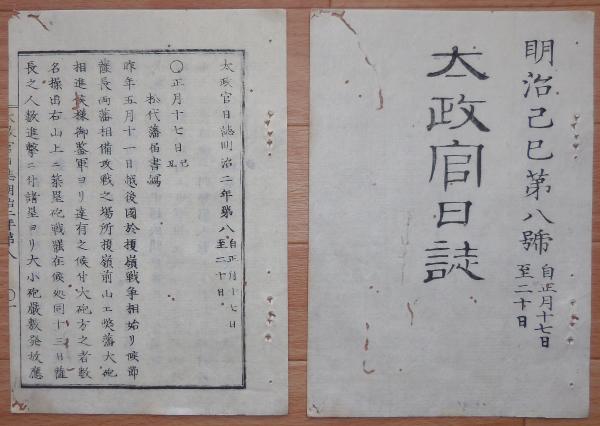 明治己巳第八號 自正月十七日至二十日
太政官日誌
太政官日誌明治二年第八 自正月十七日至二十日
〇正月十七日己丑
松代藩届書寫
昨年五月十一日越後國於榎嶺戰爭相始リ候節
薩長両藩相備攻戰之場所榎嶺前山エ弊藩大砲
相進候樣御監軍ヨリ達有之候付大砲方之者數
名操出右山上ニ築壘砲戰罷在候処同十三日薩
長之人數進擊ニ付諸壘ヨリ大小砲嚴敷發放應
太政官日誌明治二年第八 〇一